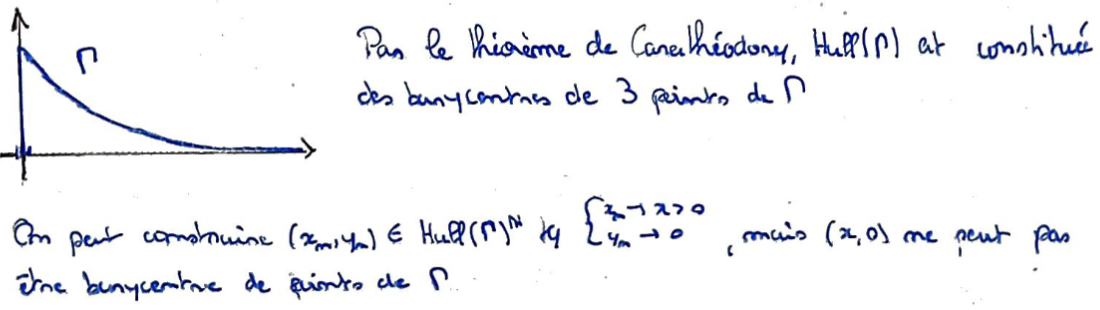 Γ
Par le théorème de Carathéodory, Hull(Γ) est constitué
des barycentres de 3 points de Γ
On peut construire (xₙ,yₙ) ∈ Hull(Γ)^ℕ tq { xₙ → x > 0
yₙ → 0 , mais (x,0) ne peut pas
être barycentre de points de Γ.